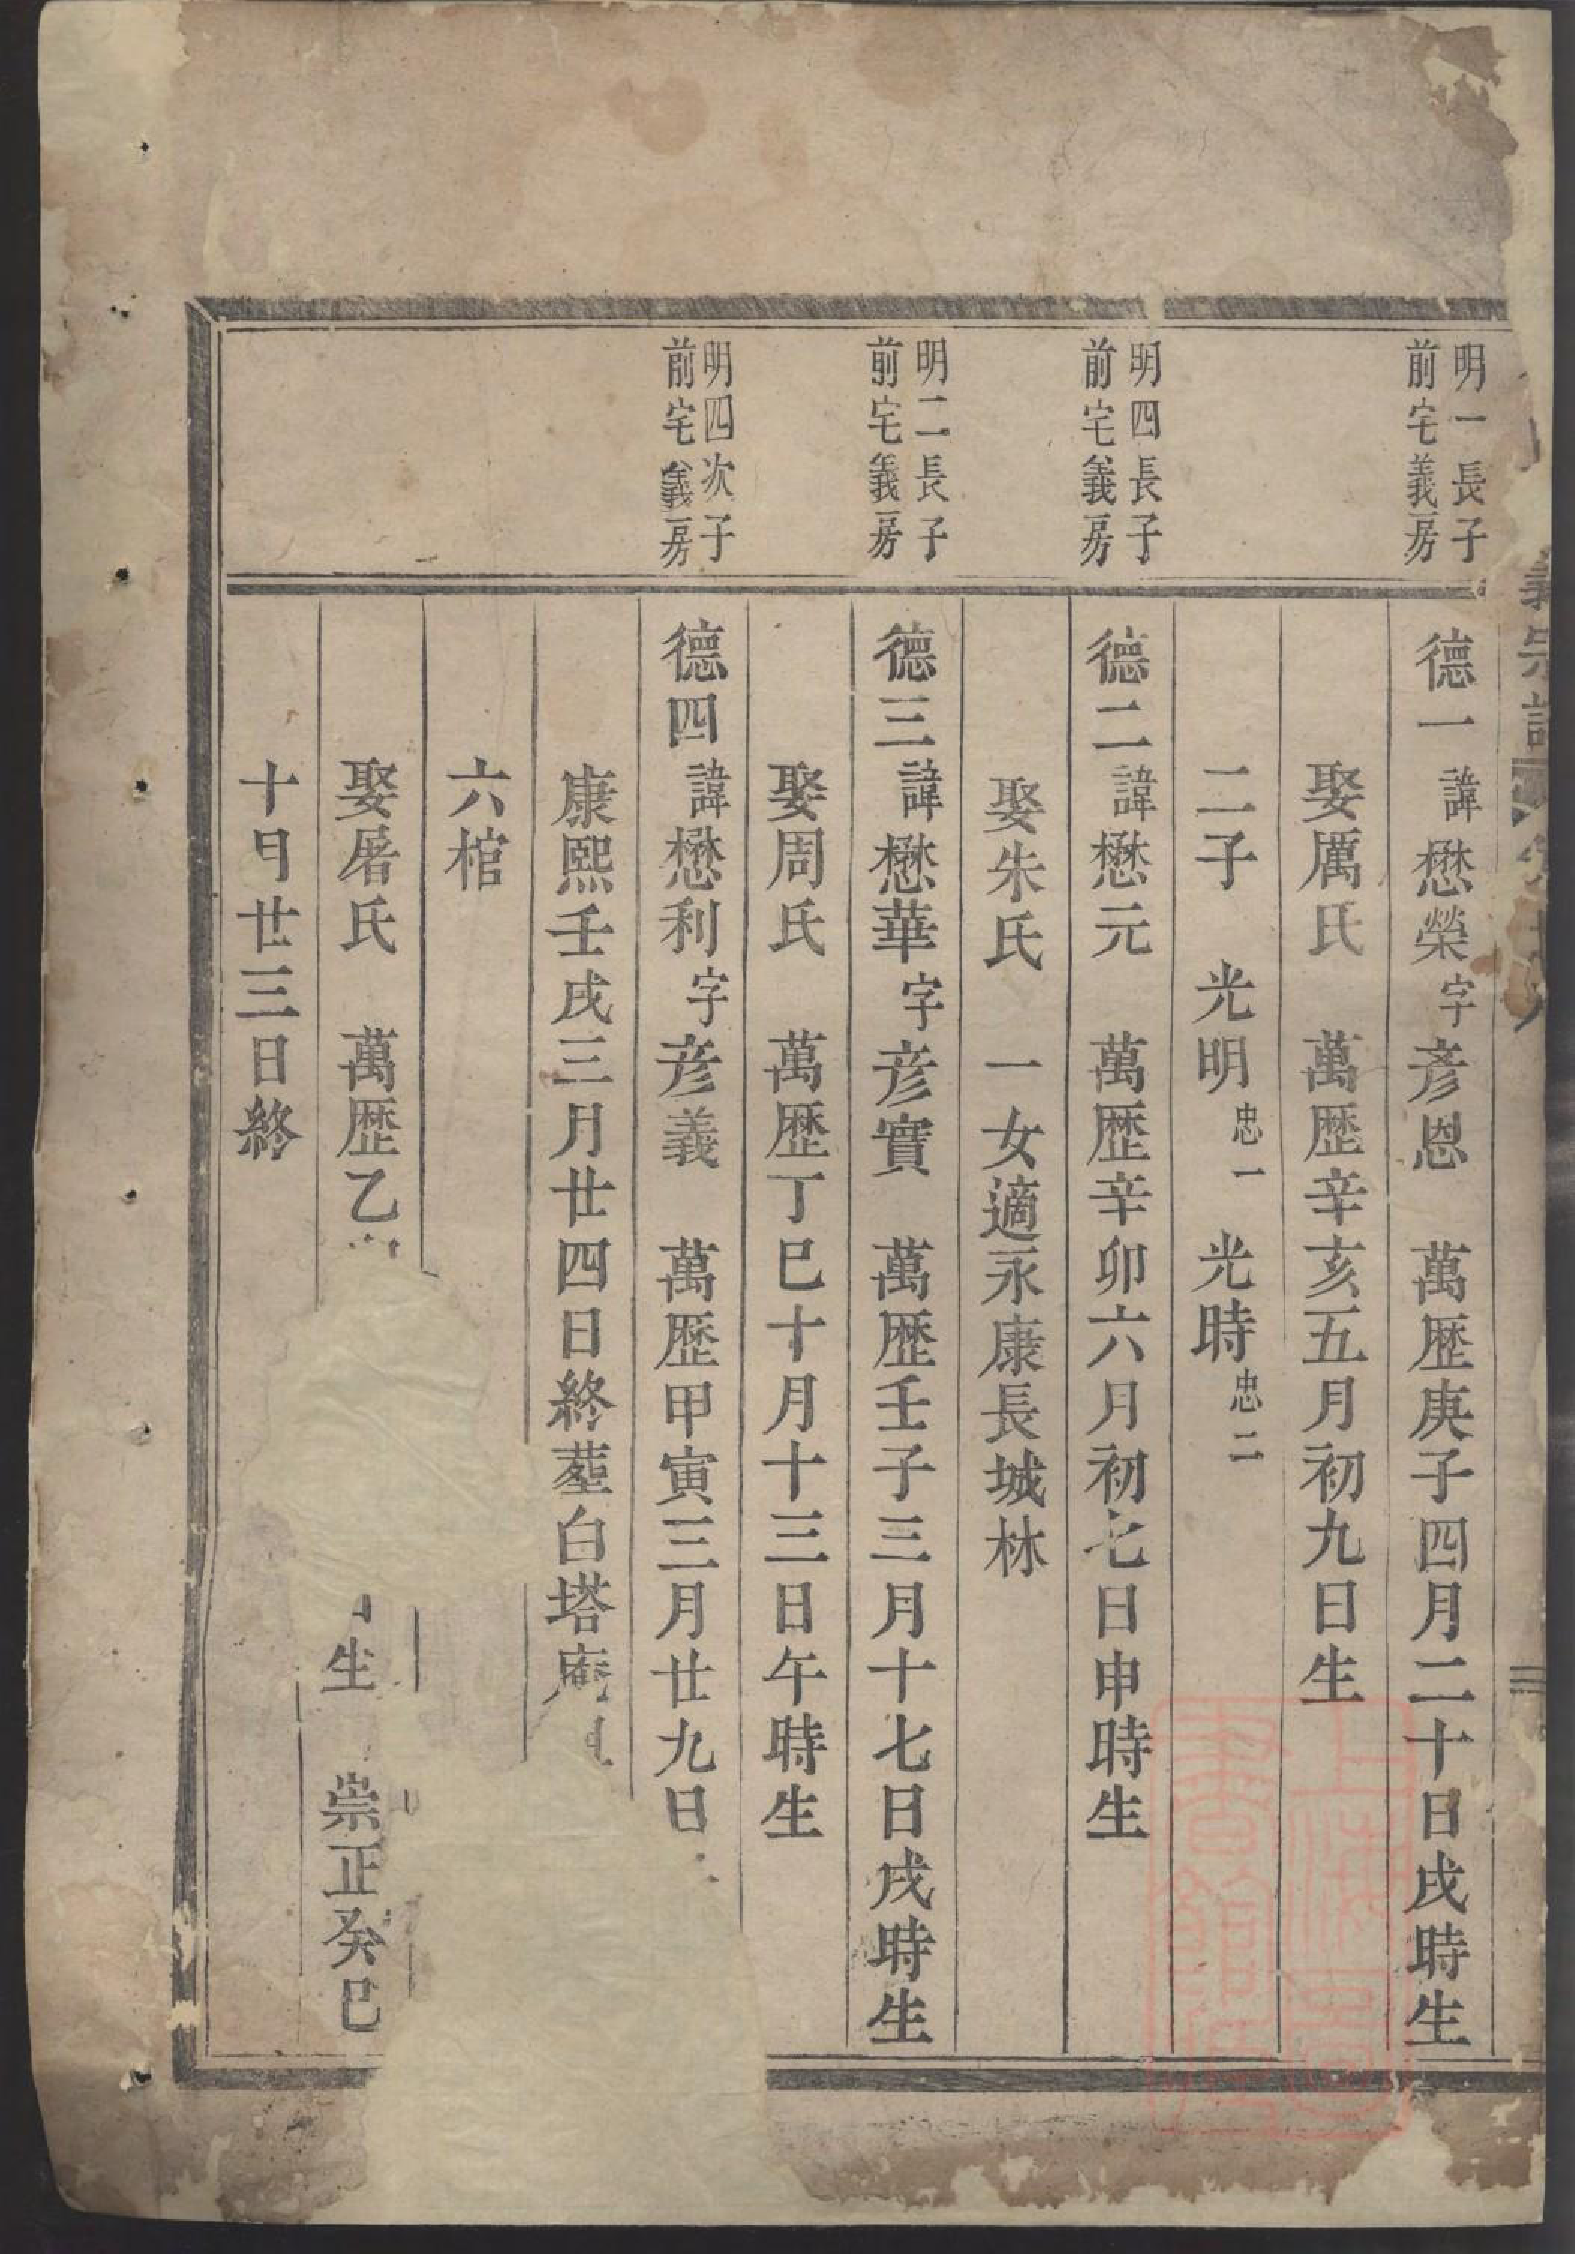 義宗譜
明一長子
前宅義房
德一諱懋榮字彥恩 萬歷庚子四月二十日戌時生
娶厲氏 萬歷辛亥五月初九日生
二子 光明忠一 光時忠二
明四長子
前宅義房
德二諱懋元 萬歷辛卯六月初七日申時生
娶朱氏 一女適永康長城林
明二長子
前宅義房
德三諱懋華字彥實 萬歷壬子三月十七日戌時生
娶周氏 萬歷丁巳十月十三日午時生
明四次子
前宅義房
德四諱懋利字彥義 萬歷甲寅三月廿九日
康熙壬戌三月廿四日終塟白塔庵
六棺
娶屠氏 萬歷乙 生 崇正癸巳
十月廿三日終
上海圖書館藏